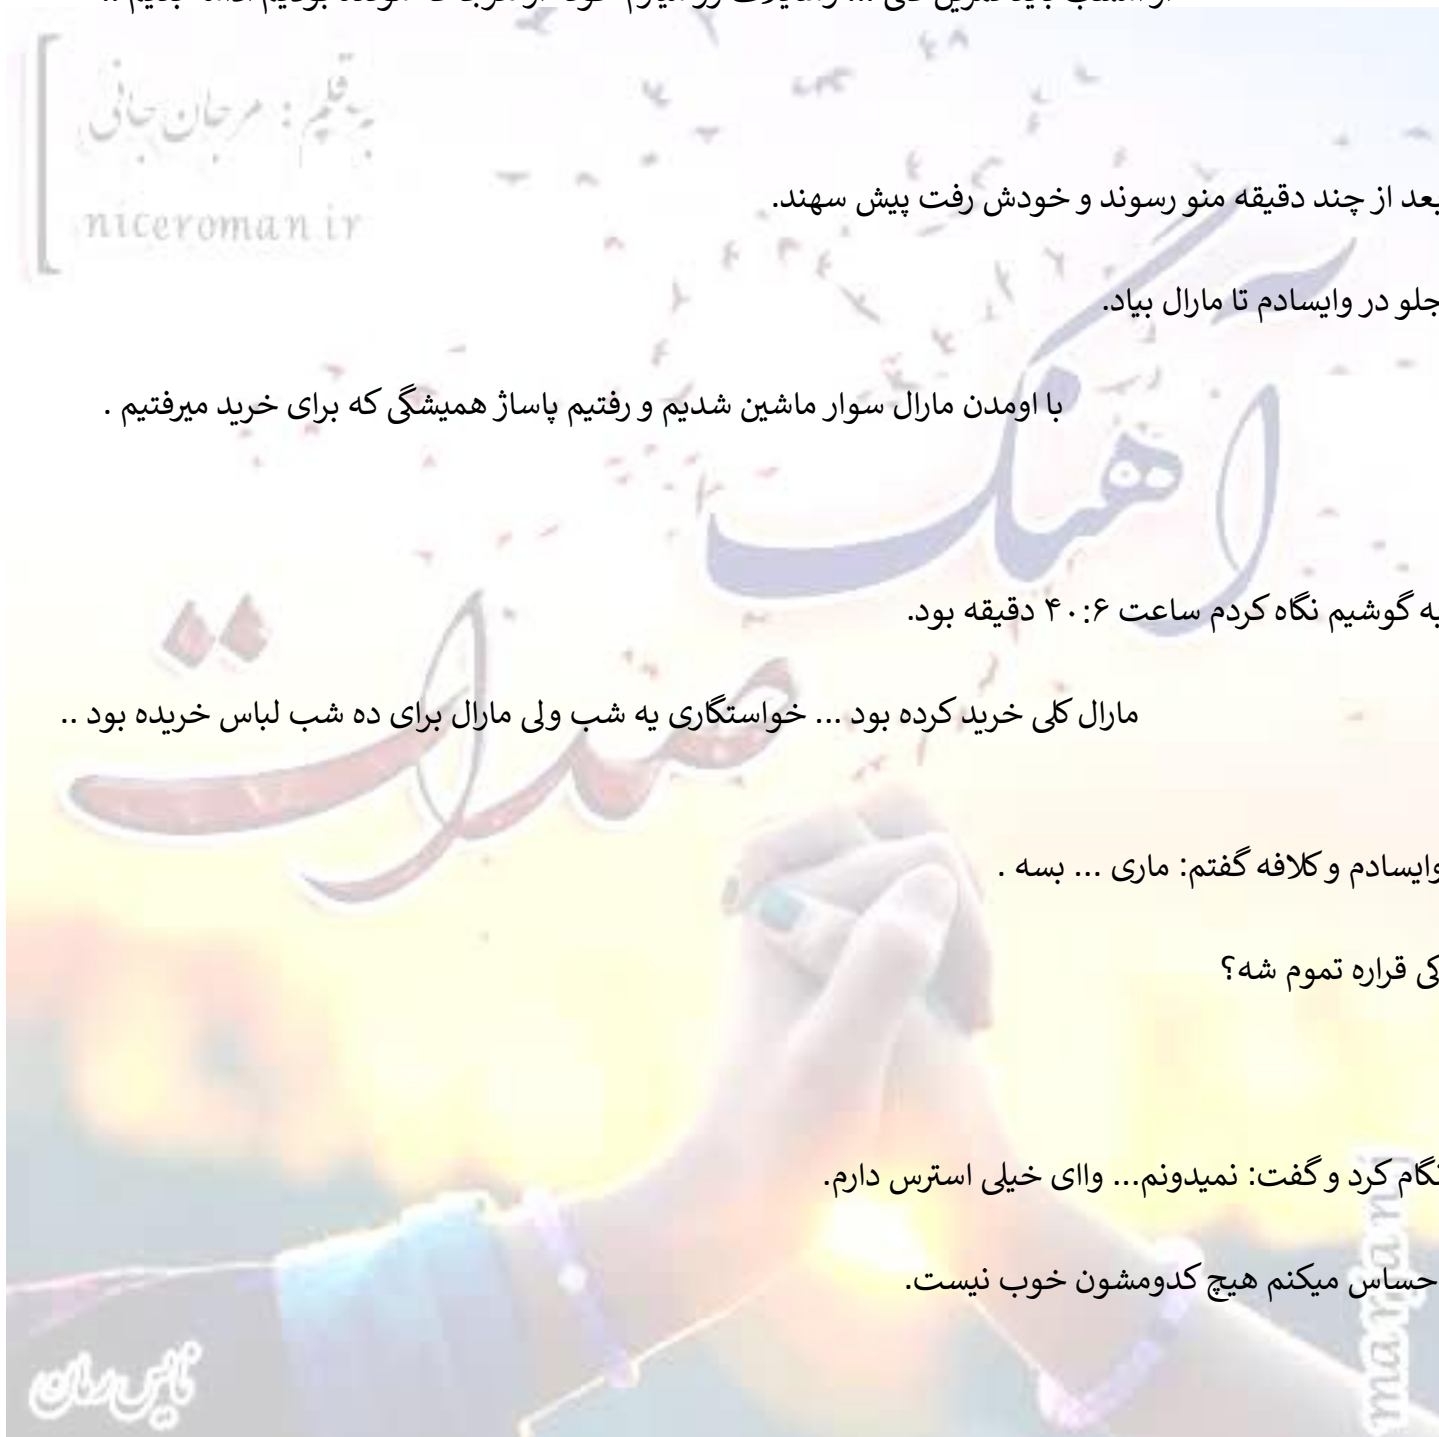 به قلم : مرجان جانی
niceroman.ir
بعد از چند دقیقه منو رسوند و خودش رفت پیش سهند.
جلو در وایسادم تا مارال بیاد.
با اومدن مارال سوار ماشین شدیم و رفتیم پاساژ همیشگی که برای خرید میرفتیم .
آهنگ
به گوشیم نگاه کردم ساعت ۴۰:۶ دقیقه بود.
صدات
مارال کلی خرید کرده بود ... خواستگاری یه شب ولی مارال برای ده شب لباس خریده بود ..
وایسادم و کلافه گفتم: ماری ... بسه .
کی قراره تموم شه؟
نگام کرد و گفت: نمیدونم... واای خیلی استرس دارم.
حساس میکنم هیچ کدومشون خوب نیست.
نایس رمان
marjan j